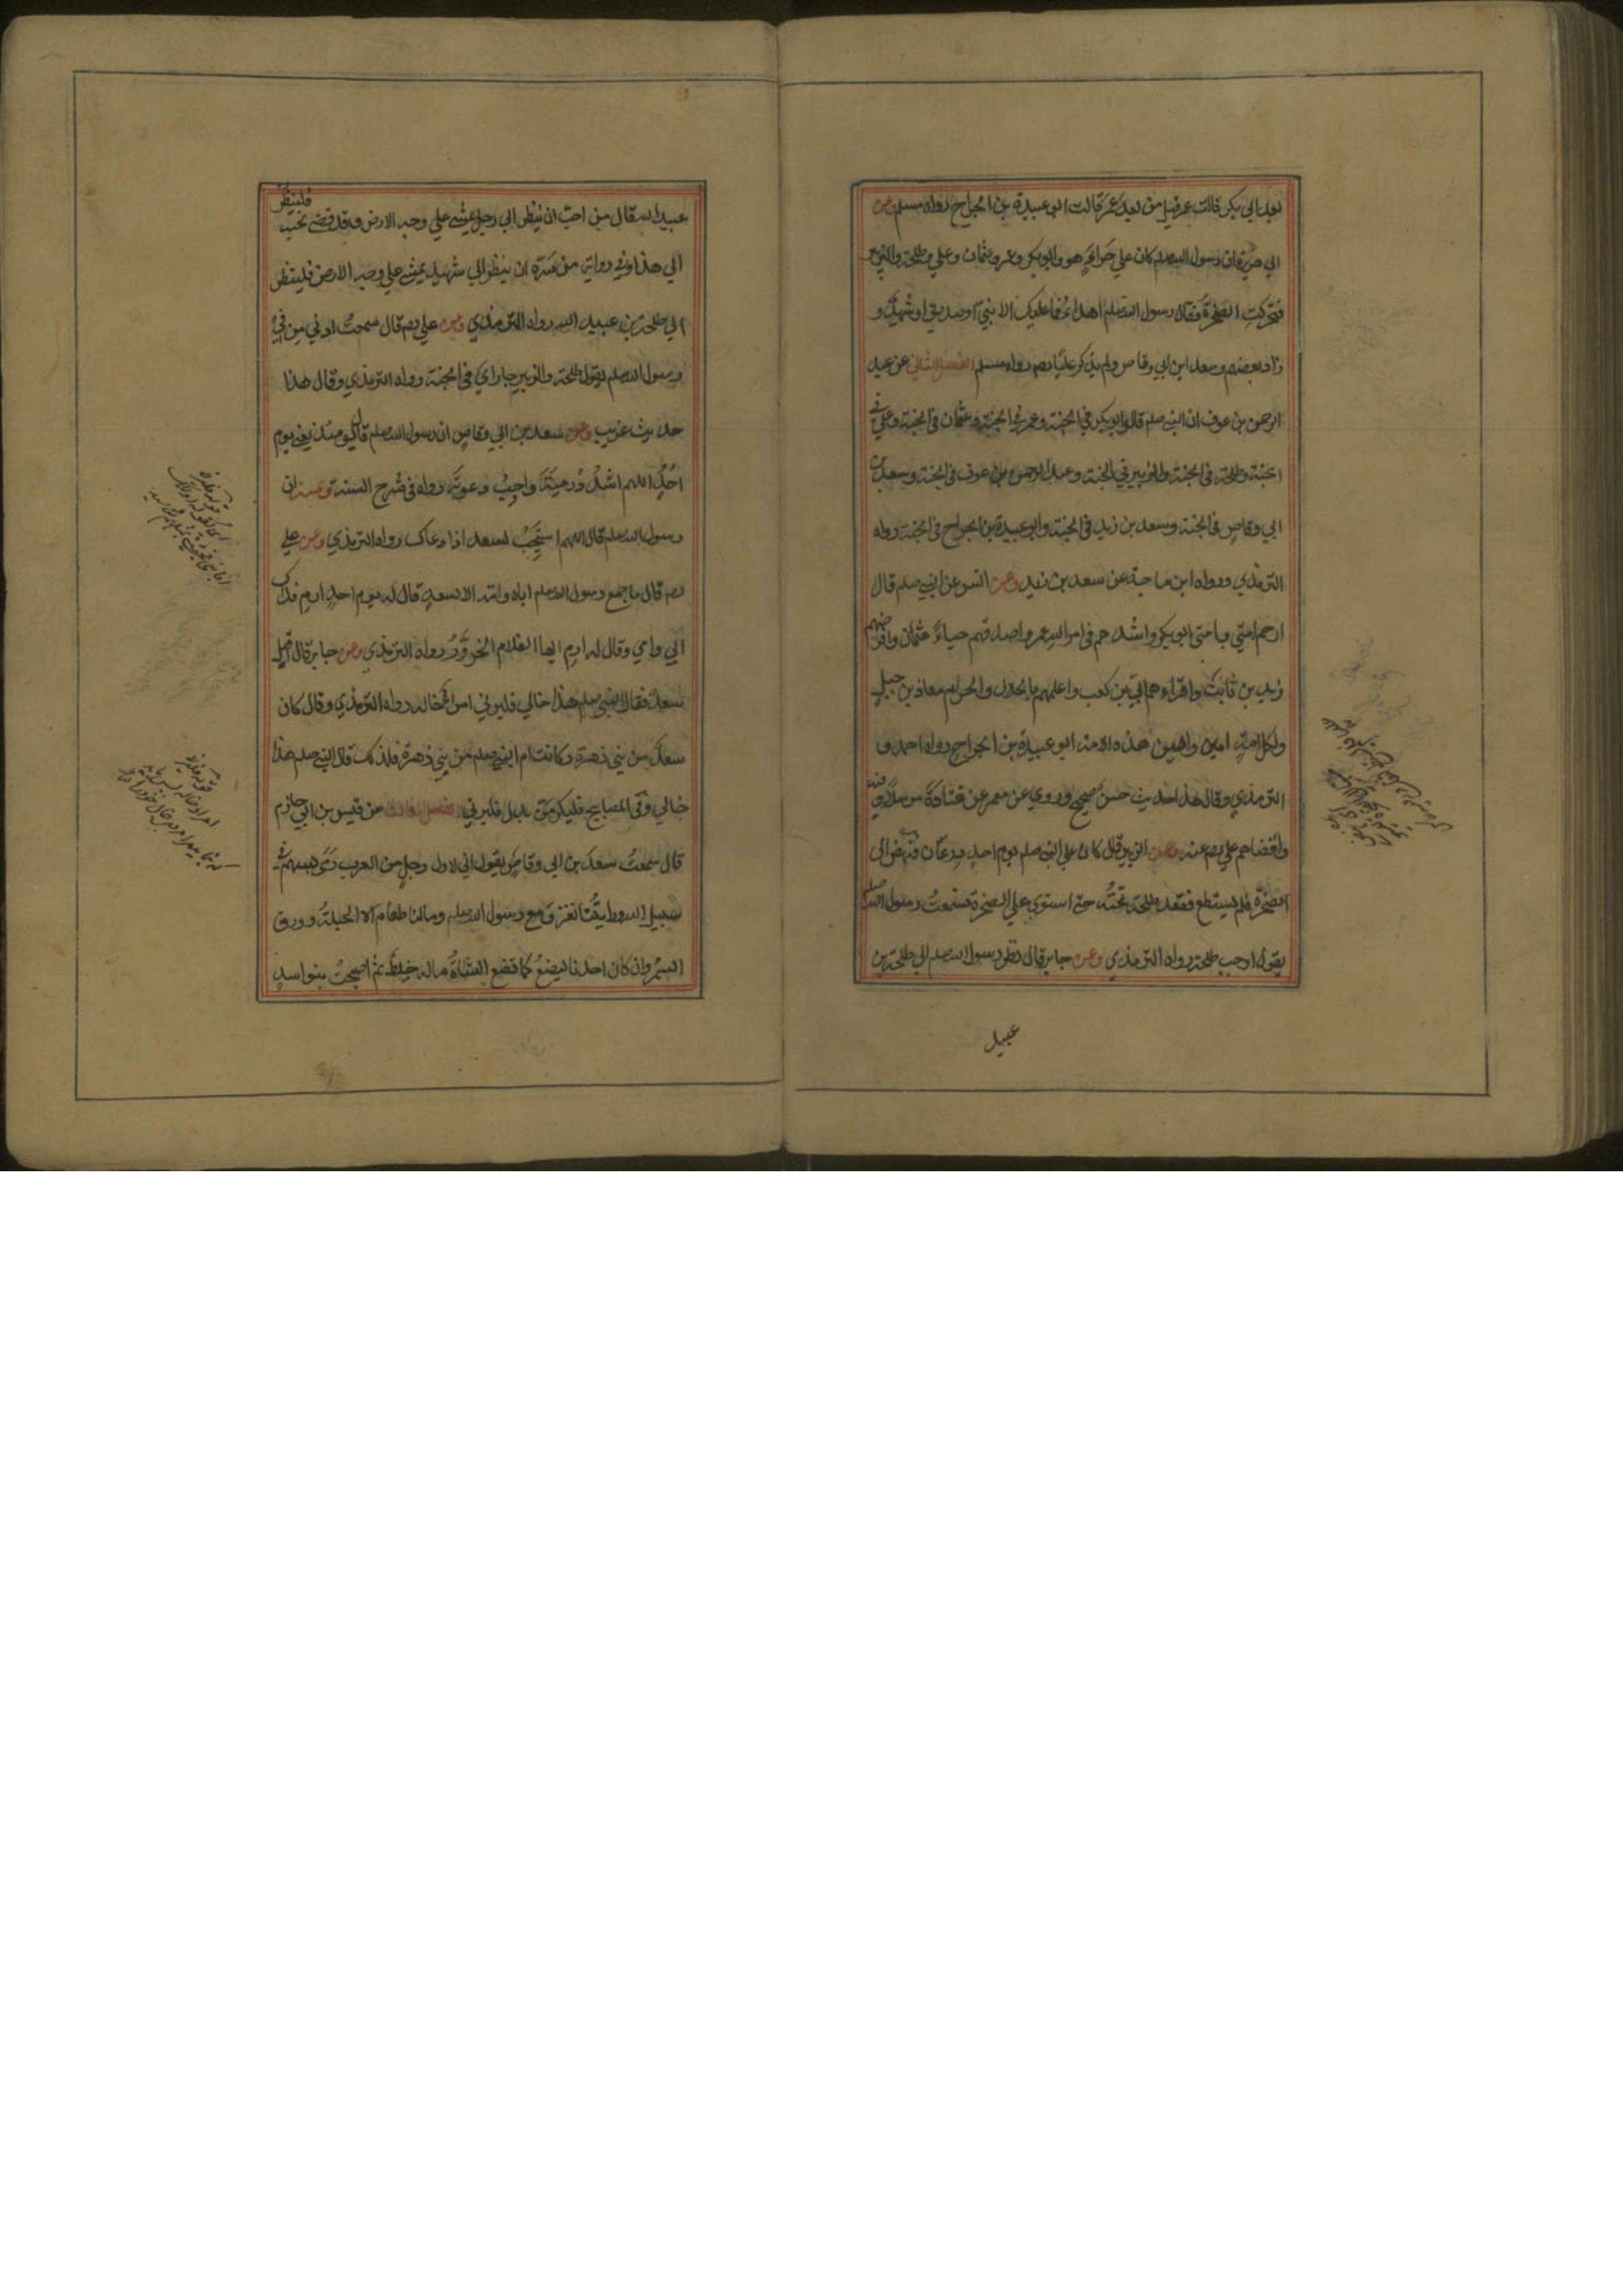 بعد ابي بكر قالت عمر قيل من بعد عمر قالت ابو عبيدة بن الجراح رواه مسلم وعن
ابي هريرة ان رسول الله صلعم كان علي حراء هو وابو بكر وعمر وعثمان وعلي وطلحة والزبير
فتحركت الصخرة فقال رسول الله صلعم اهدأ فما عليك الا نبي او صديق او شهيد و
زاد بعضهم وسعد ابن ابي وقاص ولم يذكر عليا رواه مسلم الفصل الثاني عن عبد
الرحمن بن عوف ان النبي صلعم قال ابو بكر في الجنة وعمر في الجنة وعثمان في الجنة وعلي في
الجنة وطلحة في الجنة والزبير في الجنة وعبد الرحمن بن عوف في الجنة وسعد بن
ابي وقاص في الجنة وسعد بن زيد في الجنة وابو عبيدة بن الجراح في الجنة رواه
الترمذي ورواه ابن ماجة عن سعد بن زيد وعن انس عن النبي صلعم قال
ارحم امتي بامتي ابو بكر واشدهم في امر الله عمر واصدقهم حياء عثمان وافرضهم
زيد بن ثابت واقراءهم ابي بن كعب واعلمهم بالحلال والحرام معاذ بن جبل
ولكل امة امين وامين هذه الامة ابو عبيدة بن الجراح رواه احمد و
الترمذي وقال هذا حديث حسن صحيح وروي عن معمر عن قتادة مرسلا وفيه
واقضاهم علي وعن الزبير قال كان علي النبي صلعم يوم احد درعان فنهض الى
الصخرة فلم يستطع فقعد طلحة تحته حتى استوى علي الصخرة فسمعت رسول الله صلعم
يقول اوجب طلحة رواه الترمذي وعن جابر قال نظر رسول الله صلعم الي طلحة بن
عبيد
عبيد الله قال من احب ان ينظر الي رجل يمشي علي وجه الارض وقد قضى نحبه فلينظر
الي هذا وفي رواية من سره ان ينظر الي شهيد يمشي علي وجه الارض فلينظر
الي طلحة بن عبيد الله رواه الترمذي وعن علي قال سمعت اذني من في
رسول الله صلعم يقول طلحة والزبير جاراي في الجنة رواه الترمذي وقال هذا
حديث غريب وعن سعد بن ابي وقاص ان رسول الله صلعم قال يومئذ يعني يوم
احد اللهم اشدد رميته واجب دعوته رواه في شرح السنة وعنه ان
رسول الله صلعم قال اللهم استجب لسعد اذا دعاك رواه الترمذي وعن علي
قال ما جمع رسول الله صلعم اباه وامه الا لسعد قال له يوم احد ارم فداك
ابي وامي وقال له ارم ايها الغلام الحزور رواه الترمذي وعن جابر قال اقبل
سعد فقال النبي صلعم هذا خالي فليرني امرأ خاله رواه الترمذي وقال كان
سعد من بني زهرة وكانت ام النبي صلعم من بني زهرة فلذلك قال النبي صلعم هذا
خالي وفي المصابيح فليكرمن بدل فليرني الفصل الثالث عن قيس بن ابي حازم
قال سمعت سعد بن ابي وقاص يقول اني لاول رجل من العرب رمى بسهم في
سبيل الله ورايتنا نغزو مع رسول الله صلعم وما لنا طعام الا الحبلة وورق
السمر وان كان احدنا ليضع كما تضع الشاة ماله خلط ثم اصبحت بنو اسد